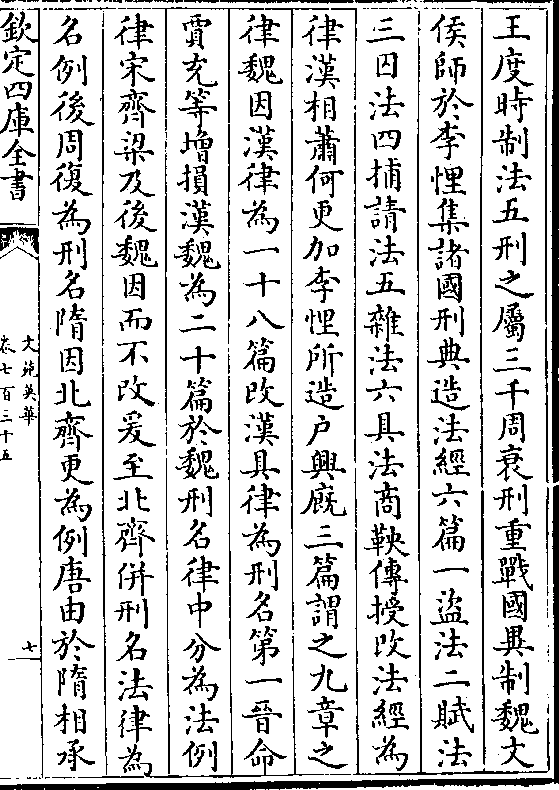 王度時制法五刑之屬三千周衰刑重戰國異制魏文
侯師於李悝集諸國刑典造法經六篇一盜法二賦法
三囚法四捕請法五雜法六具法商鞅傳授改法經為
律漢相蕭何更加李悝所造户興廐三篇謂之九章之
律魏因漢律為一十八篇改漢具律為刑名第一晉命
賈充等增損漢魏為二十篇於魏刑名律中分為法例
律宋齊梁及後魏因而不改爰至北齊併刑名法律為
名例後周復為刑名隋因北齊更為例唐由於隋相承
欽定四庫全書
文苑英華
卷七百三十五
七